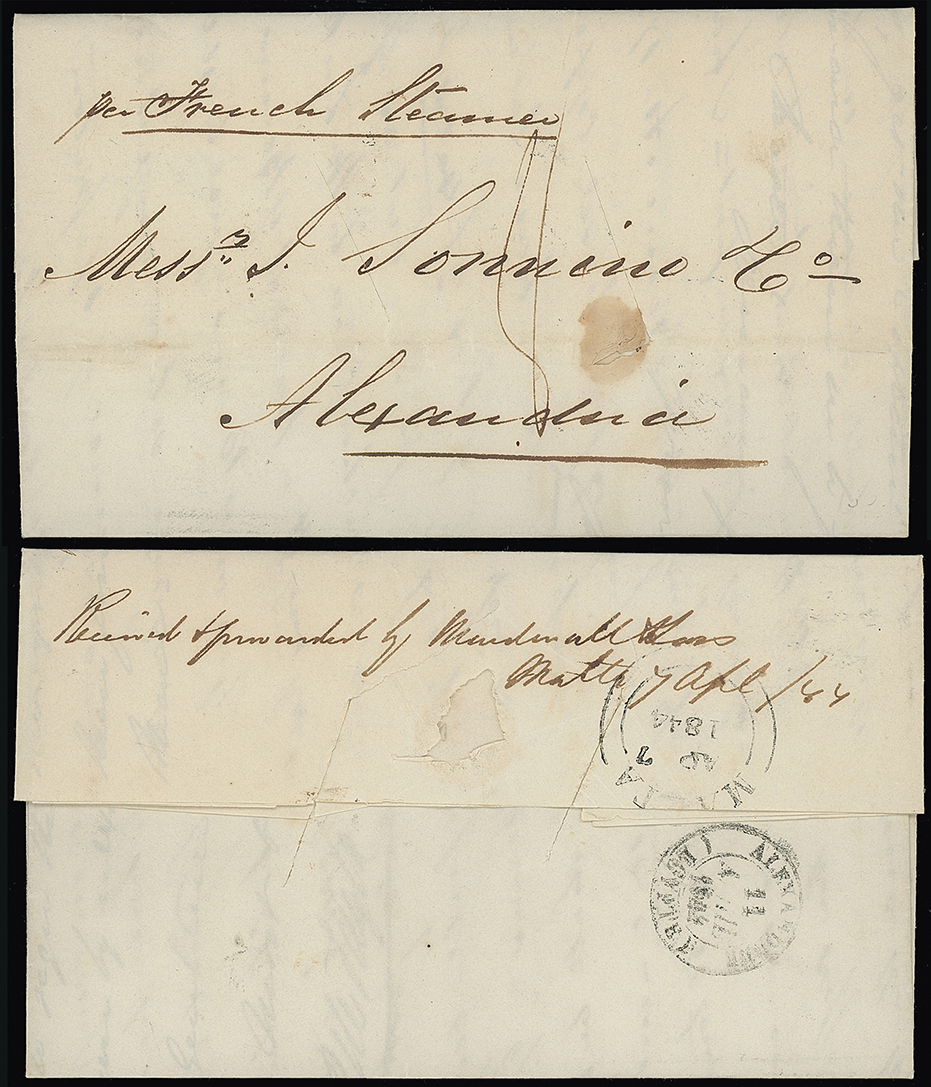 per French Steamer
Messrs J. Sonnino & Co
Alexandria
Received & forwarded by
Malta 7 Apl /44
MALTA
AP 7
1844
ALEXANDRIE
(EGYPTE)
11
1844